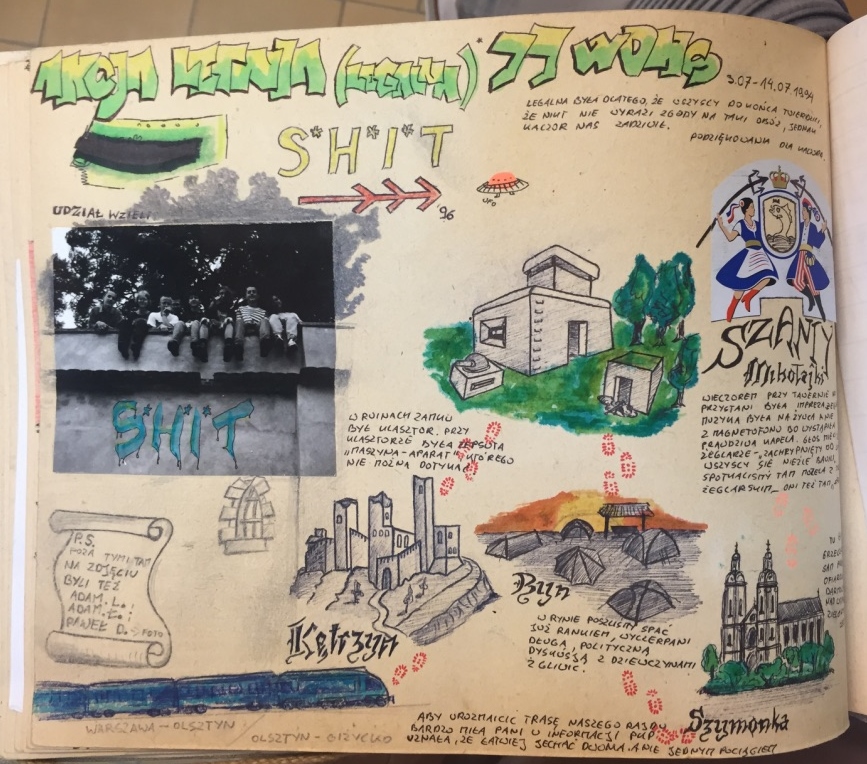 AKCJA LETNIA (LEGALNA)* 77 WDHS
3.07-14.07.1994
LEGALNA BYŁA DLATEGO, ŻE WSZYSCY DO KOŃCA TWIERDZILI,
ŻE NIKT NIE WYRAZI ZGODY NA TAKI OBÓZ, JEDNAK
KACZOR NAS ZADZIWIŁ.
PODZIĘKOWANIA DLA KACZORA
S*H*I*T
'96
UFO
UDZIAŁ WZIELI
S*H*I*T
SZANTY
Mikołajki
WIECZOREM PRZY TAWERNIE W
PRZYSTANI BYŁA IMPREZA
MUZYKA BYŁA NA ŻYWCA A NIE
Z MAGNETOFONU BO WYSTĄPIŁA
PRAWDZIWA KAPELA. GŁOS MIELI
ŻEGLARSKI - "ZACHRYPNIĘTY OD
WSZYSCY SIĘ NIEŹLE BAWILI
SPOTKALIŚMY TAM
ŻEGLARSKIM ONI TEŻ TAM
W RUINACH ZAMKU
BYŁ KLASZTOR. PRZY
KLASZTORZE BYŁA ZEPSUTA
"MASZYNA-APARAT" KTÓREGO
NIE MOŻNA DOTYKAĆ
P.S.
POZA TYMI TAM
NA ZDJĘCIU
BYLI TEŻ
ADAM. L.;
ADAM. Ł.;
PAWEŁ D. FOTO
Kętrzyn
Ryn
W RYNIE POSZLIŚMY SPAĆ
JUŻ RANKIEM, WYCZERPANI
DŁUGĄ, POLITYCZNĄ
DYSKUSJĄ Z DZIEWCZYNAMI
Z GLIWIC.
Szymonka
WARSZAWA - OLSZTYN
OLSZTYN - GIŻYCKO
ABY UROZMAICIĆ TRASĘ NASZEGO RAJDU
BARDZO MIŁA PANI W INFORMACJI PKP
UZNAŁA, ŻE ŁATWIEJ JECHAĆ DWOMA A NIE JEDNYM POCIĄGIEM